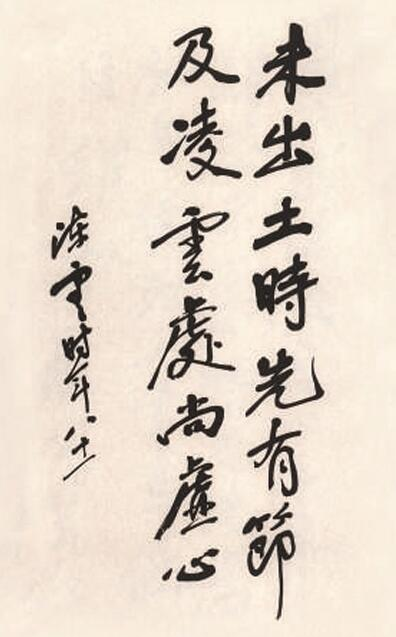 未出土時先有節
及凌雲處尚虛心
陈雲时年八十一